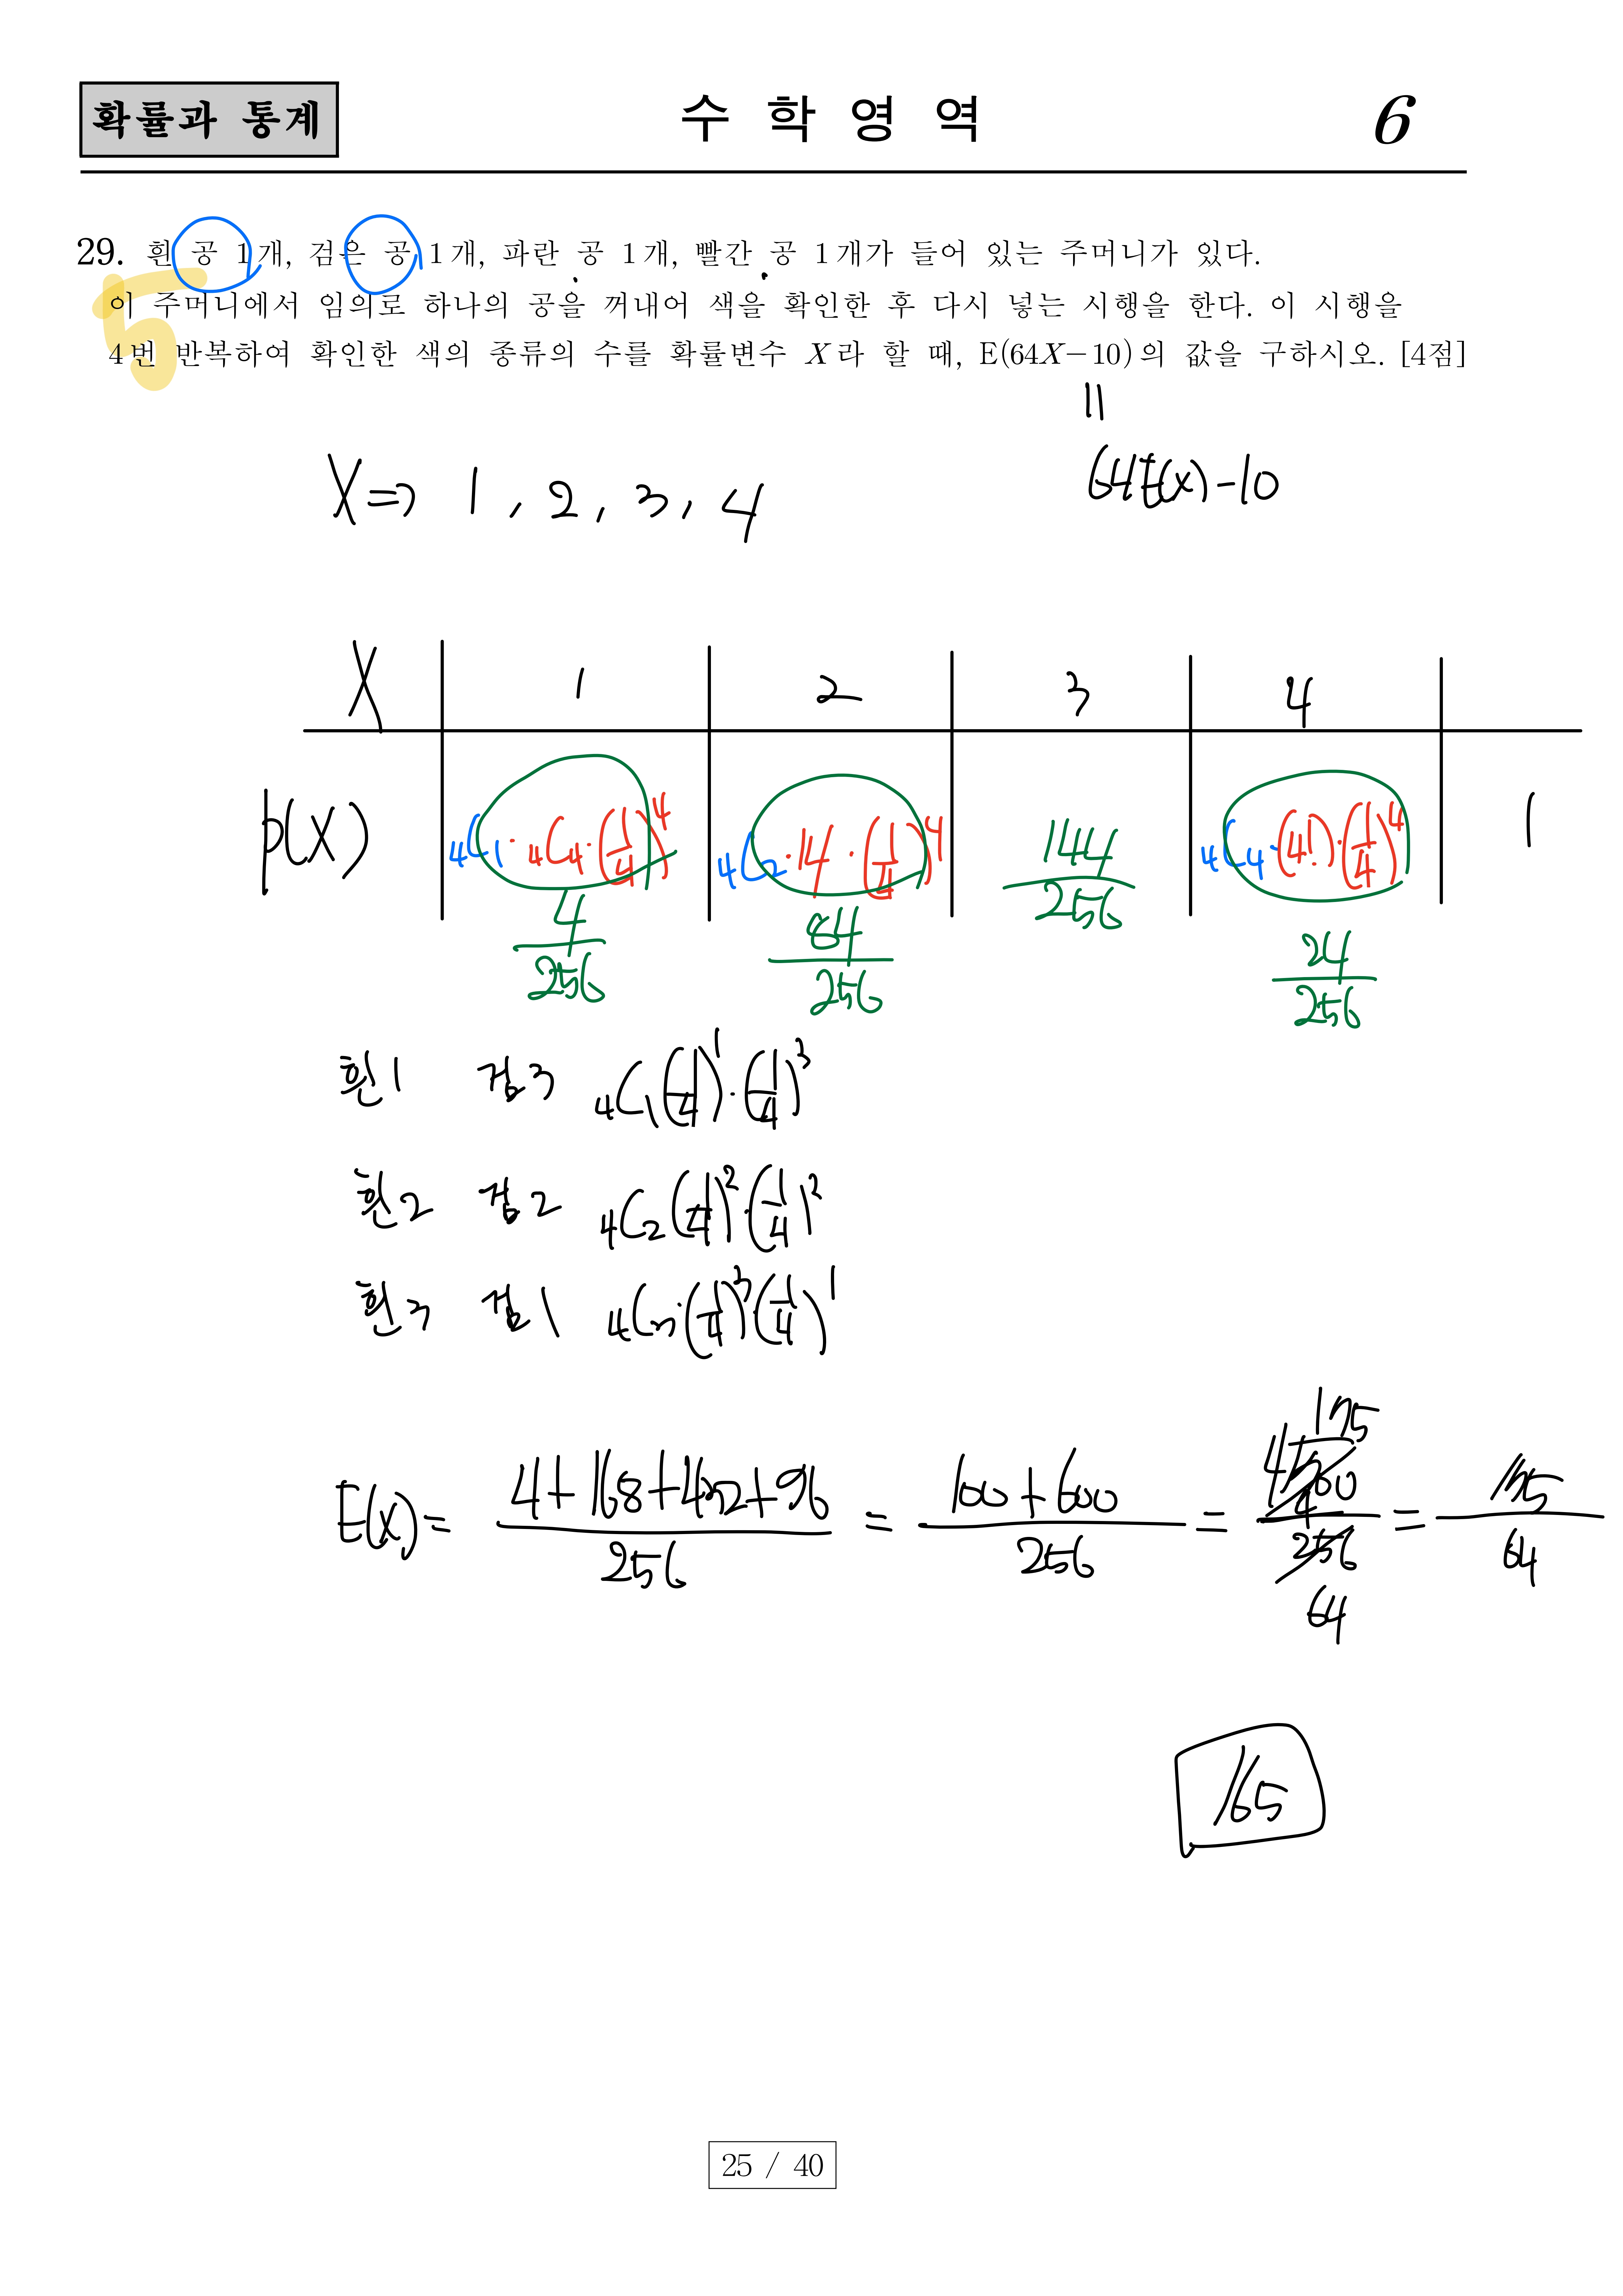 확률과 통계 수 학 영 역 6
29. 흰 공 1개, 검은 공 1개, 파란 공 1개, 빨간 공 1개가 들어 있는 주머니가 있다.
이 주머니에서 임의로 하나의 공을 꺼내어 색을 확인한 후 다시 넣는 시행을 한다. 이 시행을
4번 반복하여 확인한 색의 종류의 수를 확률변수 X라 할 때, E(64X-10)의 값을 구하시오. [4점]
5
||
64E(X)-10
X => 1, 2, 3, 4
X 1 2 3 4
P(X) ₄C₁·₄C₄·(1/4)⁴ ₄C₂·14·(1/4)⁴ 144/256 ₄C₄·(4!)·(1/4)⁴ 1
4/256 84/256 24/256
흰1 검3 ₄C₁(1/4)¹·(1/4)³
흰2 검2 ₄C₂(1/4)²·(1/4)²
흰3 검1 ₄C₃·(1/4)³·(1/4)¹
E(X)= 4+168+432+96/256 = 100+600/256 = 700/256 = 175/64
165
25 / 40